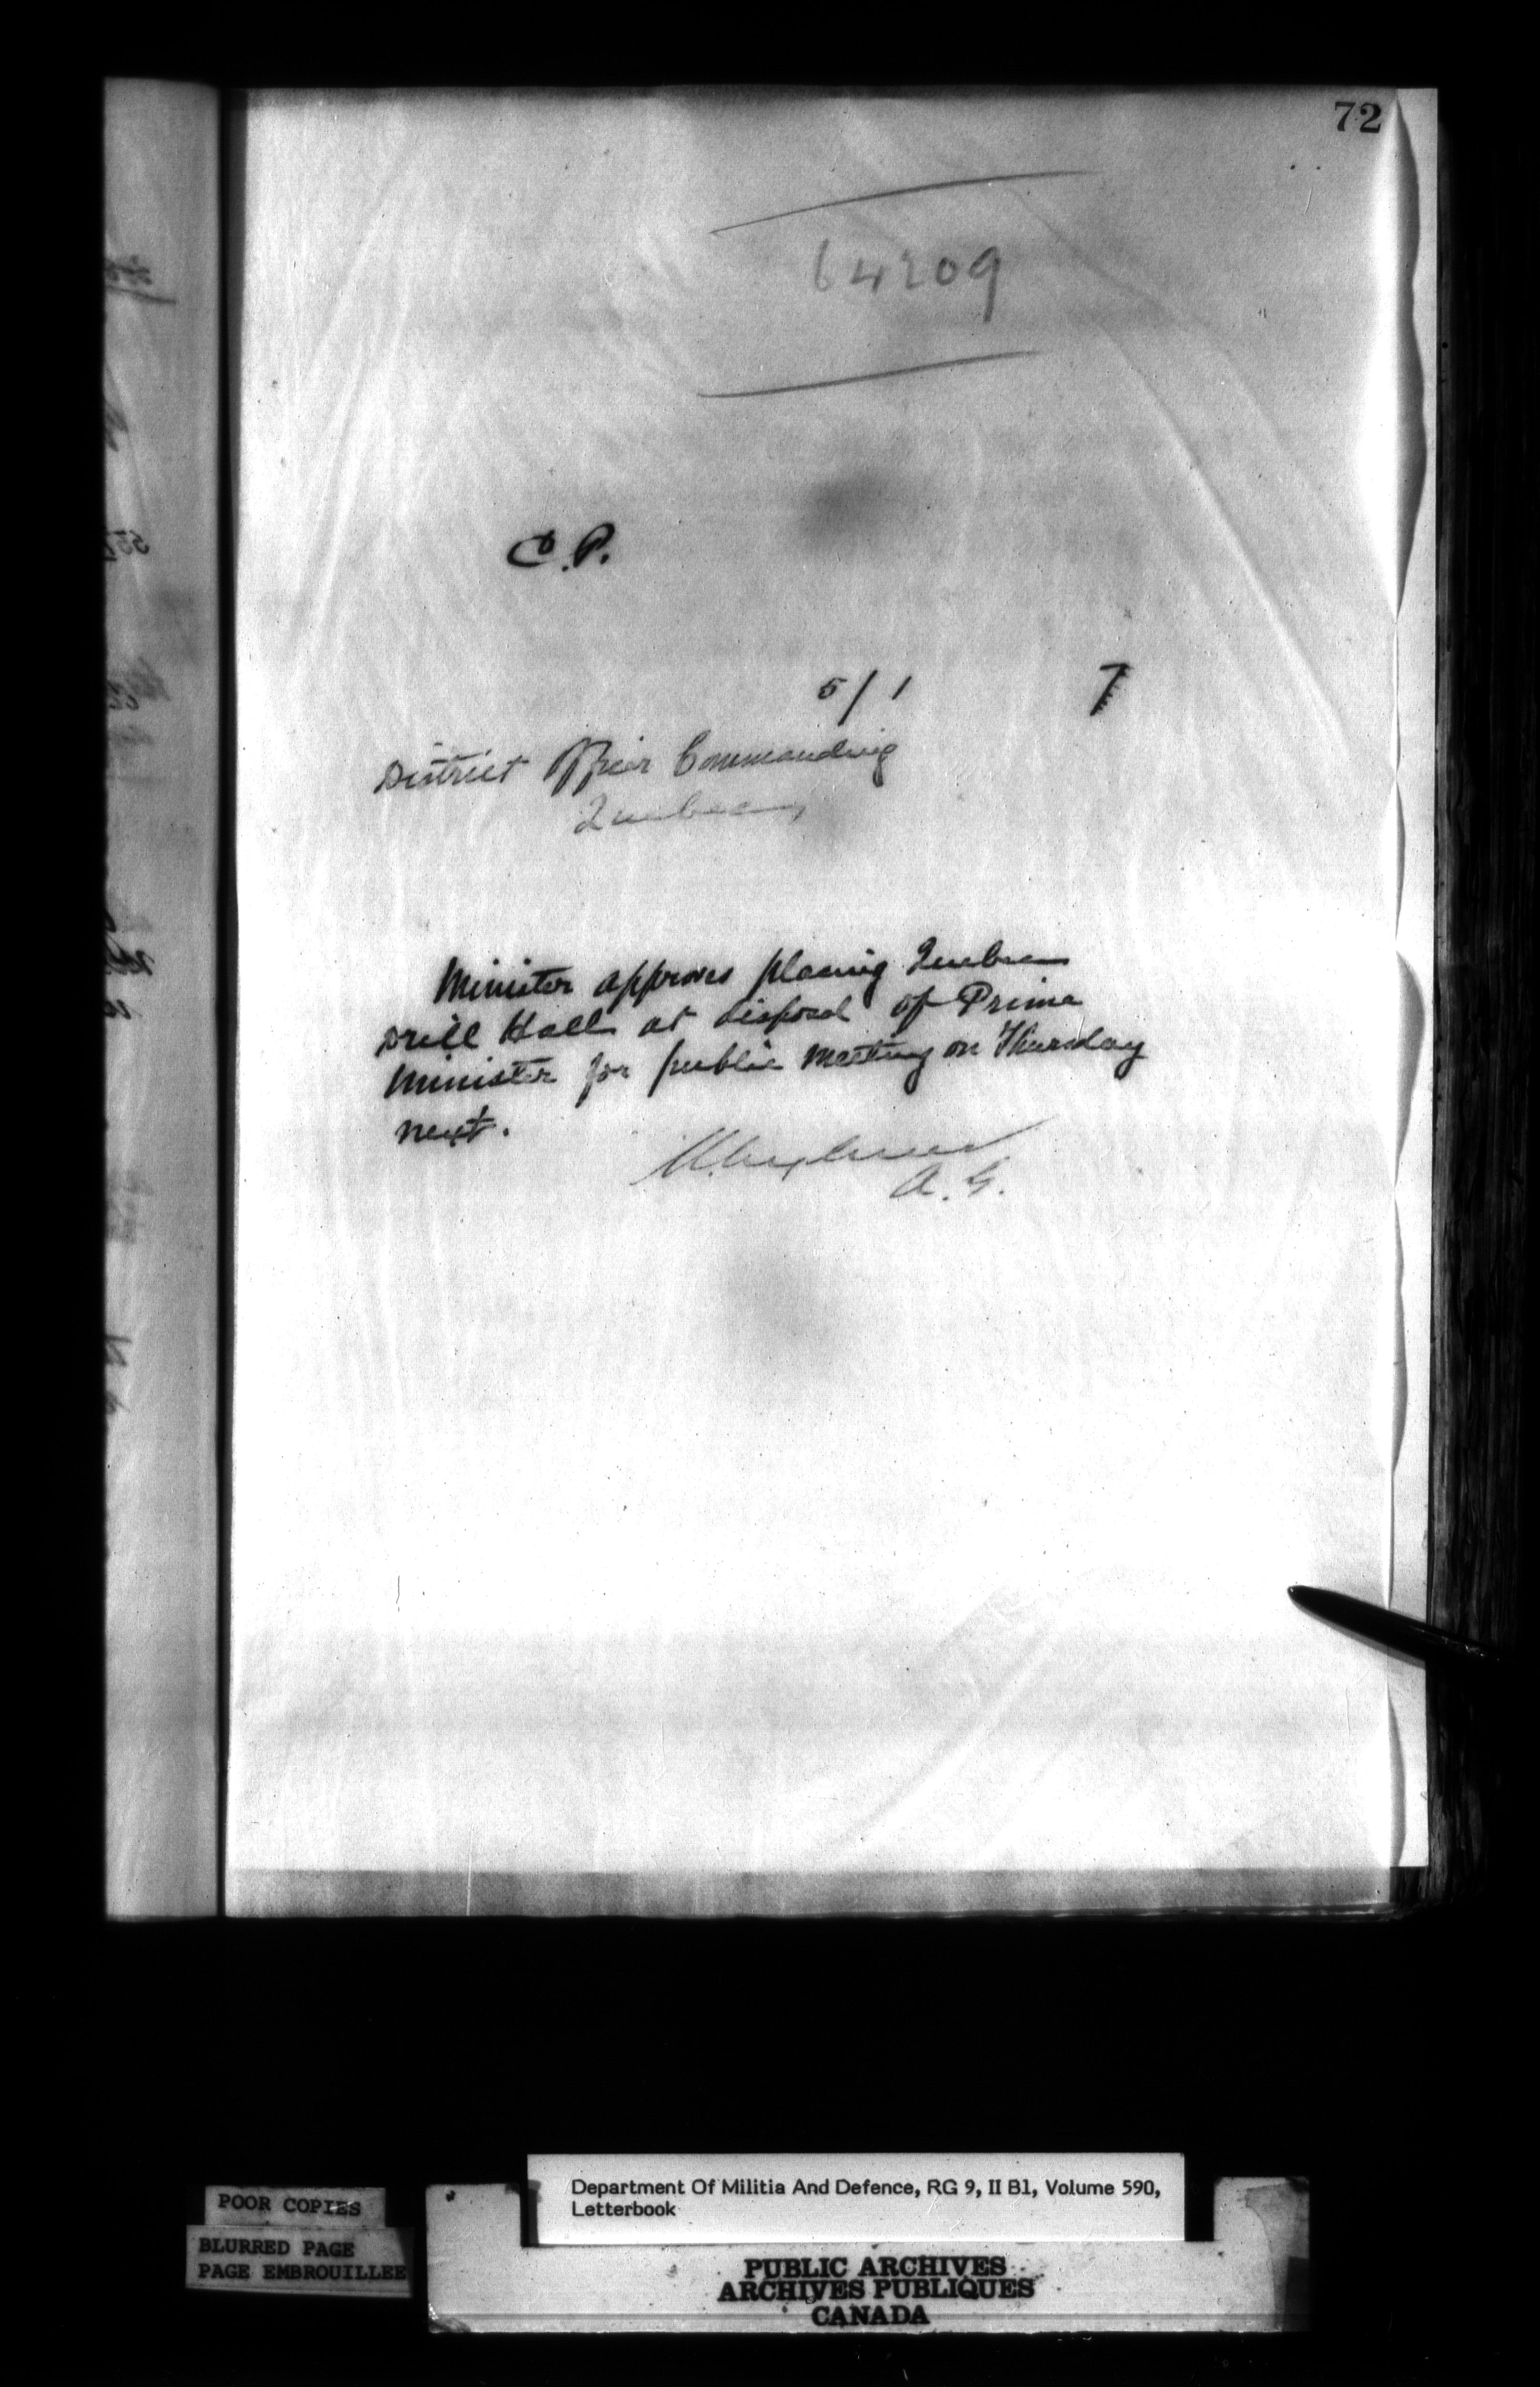 72
64209
C.P.
5/1 7
District Officer Commanding
Quebec
Minister approves placing Quebec
Drill Hall at disposal of Prime
Minister for public meeting on Thursday
next.
A.G.
Department Of Militia And Defence, RG 9, II B1, Volume 590,
Letterbook
POOR COPIES
BLURRED PAGE
PAGE EMBROUILLEE
PUBLIC ARCHIVES
ARCHIVES PUBLIQUES
CANADA